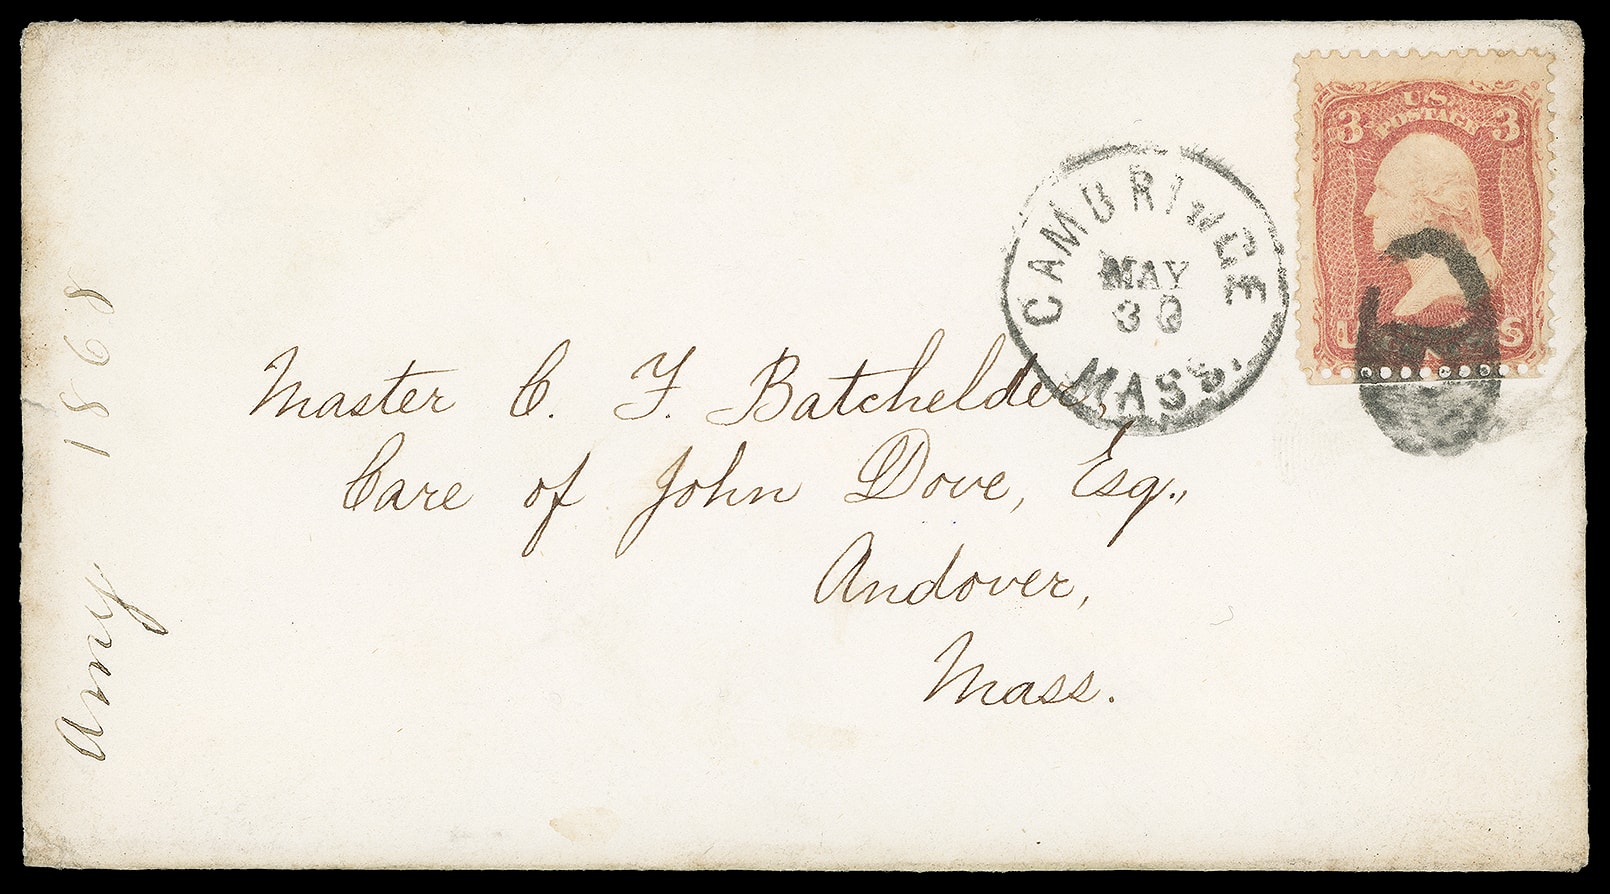 Master C. F. Batchelder,
Care of John Dove, Esq.,
Andover,
Mass.
CAMBRIDGE
MAY
30
MASS.
U.S.
POSTAGE
3 3
Amy 1868